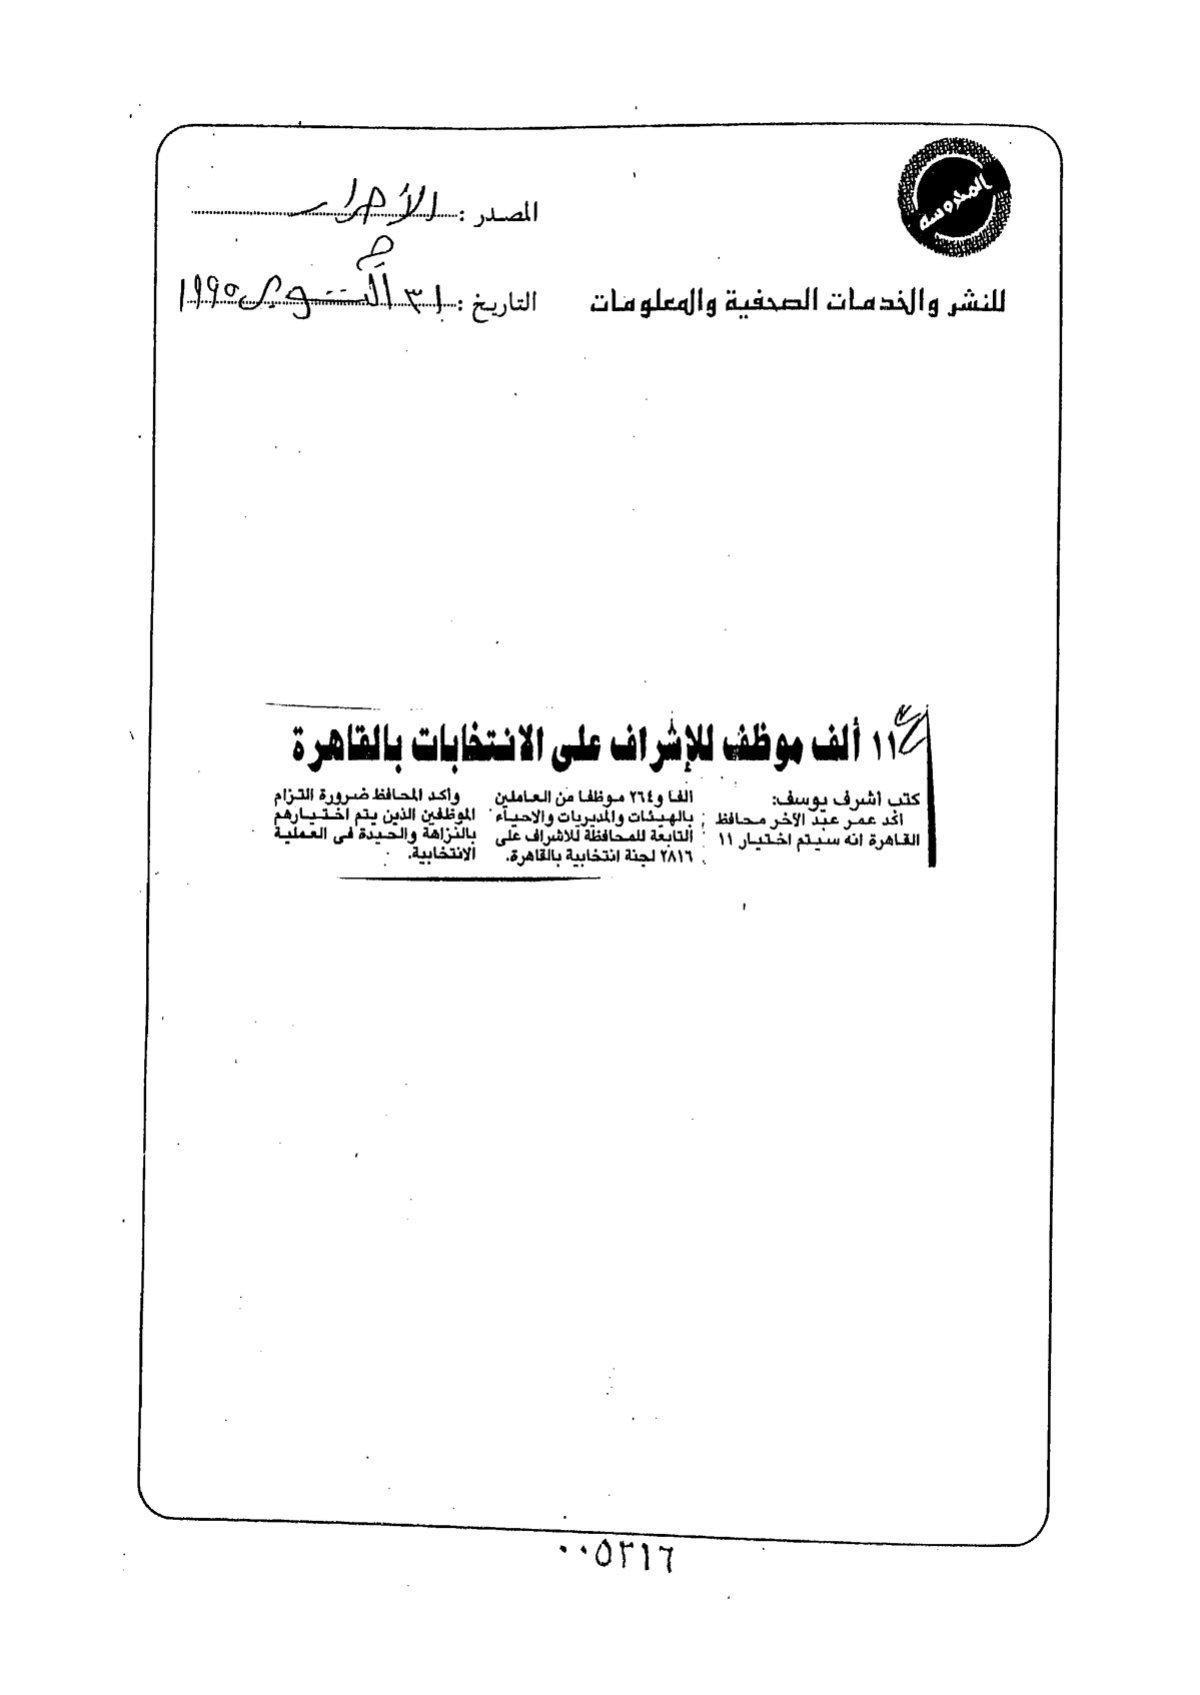 المحروسة
المصدر : الأحرار
للنشر والخدمات الصحفية والمعلومات
التاريخ : ٣١ أكتوبر ١٩٩٥
١١ ألف موظف للإشراف على الانتخابات بالقاهرة
كتب أشرف يوسف:
اكد عمر عبد الآخر محافظ
القاهرة انه سيتم اختيار ١١
الفا و٢٦٤ موظفا من العاملين
بالهيئات والمديريات والاحياء
التابعة للمحافظة للاشراف على
٢٨١٦ لجنة انتخابية بالقاهرة.
واكد المحافظ ضرورة التزام
الموظفين الذين يتم اختيارهم
بالنزاهة والحيدة فى العملية
الانتخابية.
٠٠٥٢١٦